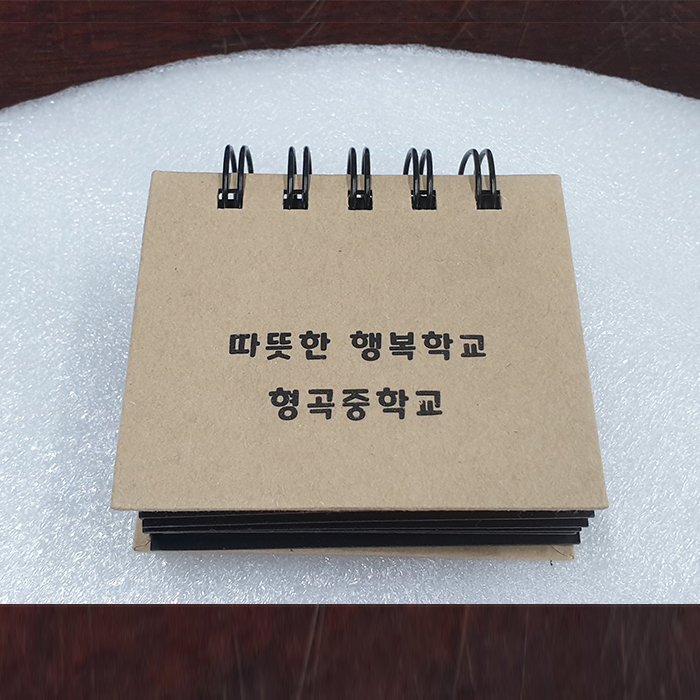 따뜻한 행복학교
형곡중학교